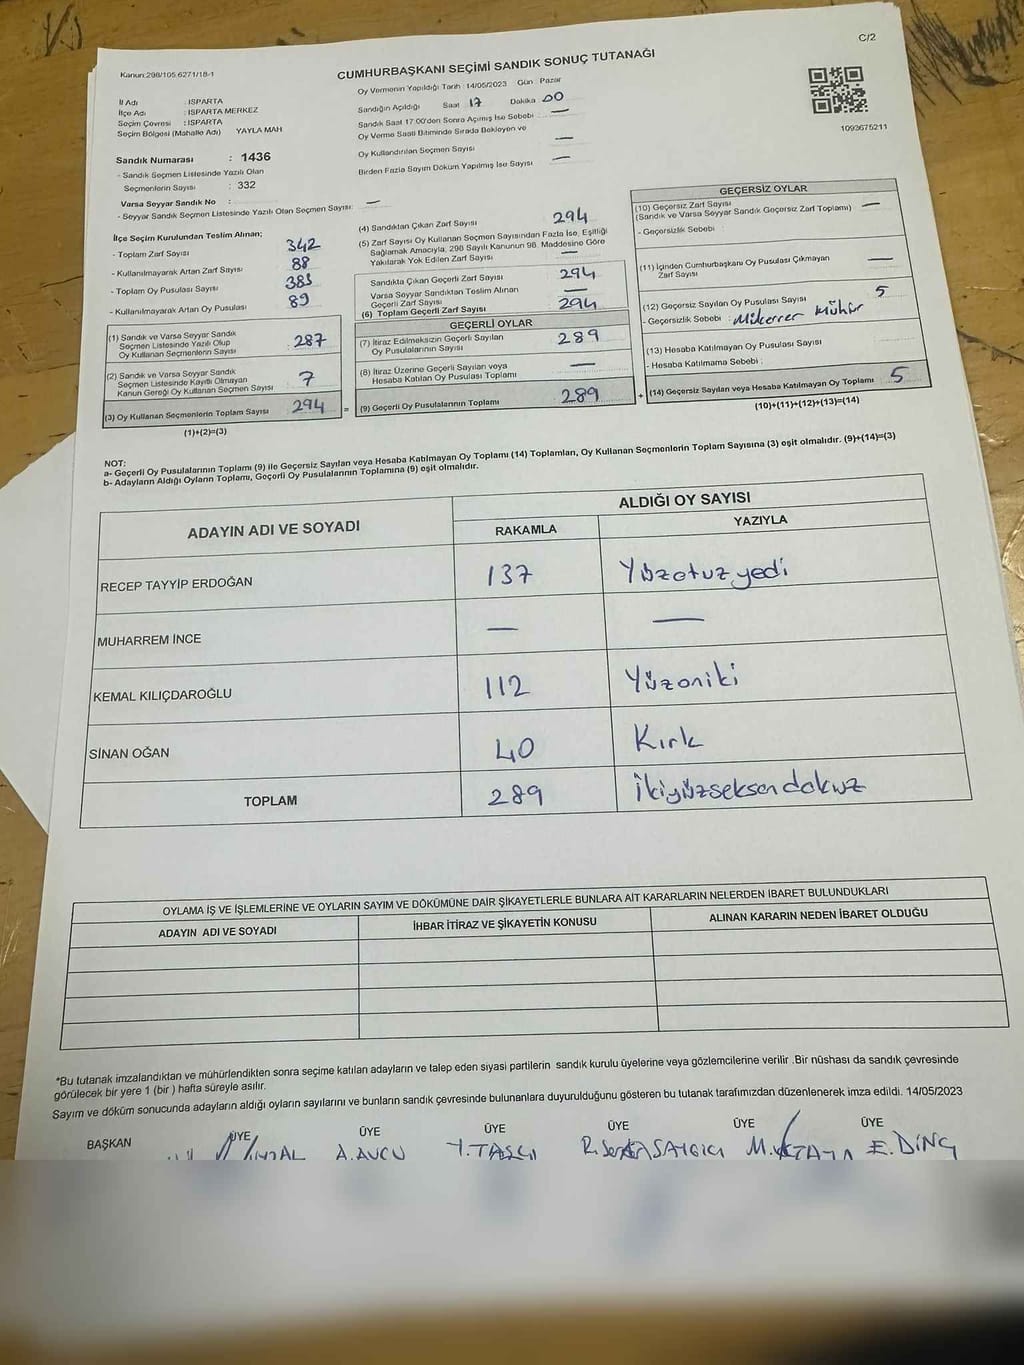 C/2
Kanun:298/105 6271/18-1
CUMHURBAŞKANI SEÇİMİ SANDIK SONUÇ TUTANAĞI
İl Adı : ISPARTA
İlçe Adı : ISPARTA MERKEZ
Seçim Çevresi : ISPARTA
Seçim Bölgesi (Mahalle Adı) YAYLA MAH
Sandık Numarası : 1436
- Sandık Seçmen Listesinde Yazılı Olan
Seçmenlerin Sayısı : 332
Varsa Seyyar Sandık No :
- Seyyar Sandık Seçmen Listesinde Yazılı Olan Seçmen Sayısı: —
Oy Vermenin Yapıldığı Tarih :14/05/2023 Gün : Pazar
Sandığın Açıldığı Saat 17 Dakika 00
Sandık Saat 17:00'den Sonra Açılmış İse Sebebi —
Oy Verme Saati Bitiminde Sırada Bekleyen ve
Oy Kullandırılan Seçmen Sayısı —
Birden Fazla Sayım Döküm Yapılmış İse Sayısı —
1093675211
İlçe Seçim Kurulundan Teslim Alınan;
- Toplam Zarf Sayısı 342
- Kullanılmayarak Artan Zarf Sayısı 88
- Toplam Oy Pusulası Sayısı 383
- Kullanılmayarak Artan Oy Pusulası 89
(1) Sandık ve Varsa Seyyar Sandık
Seçmen Listesinde Yazılı Olup
Oy Kullanan Seçmenlerin Sayısı 287
(2) Sandık ve Varsa Seyyar Sandık
Seçmen Listesinde Kayıtlı Olmayan
Kanun Gereği Oy Kullanan Seçmen Sayısı 7
(3) Oy Kullanan Seçmenlerin Toplam Sayısı 294 =
(1)+(2)=(3)
(4) Sandıktan Çıkan Zarf Sayısı 294
(5) Zarf Sayısı Oy Kullanan Seçmen Sayısından Fazla İse, Eşitliği
Sağlamak Amacıyla, 298 Sayılı Kanunun 98. Maddesine Göre
Yakılarak Yok Edilen Zarf Sayısı —
Sandıkta Çıkan Geçerli Zarf Sayısı 294
Varsa Seyyar Sandıktan Teslim Alınan
Geçerli Zarf Sayısı —
(6) Toplam Geçerli Zarf Sayısı 294
GEÇERLİ OYLAR
(7) İtiraz Edilmeksizin Geçerli Sayılan
Oy Pusulalarının Sayısı 289
(8) İtiraz Üzerine Geçerli Sayılan veya
Hesaba Katılan Oy Pusulası Toplamı —
(9) Geçerli Oy Pusulalarının Toplamı 289 +
GEÇERSİZ OYLAR
(10) Geçersiz Zarf Sayısı
(Sandık ve Varsa Seyyar Sandık Geçersiz Zarf Toplamı) —
- Geçersizlik Sebebi :
(11) İçinden Cumhurbaşkanı Oy Pusulası Çıkmayan
Zarf Sayısı —
(12) Geçersiz Sayılan Oy Pusulası Sayısı 5
- Geçersizlik Sebebi : Mükerrer Mühür
(13) Hesaba Katılmayan Oy Pusulası Sayısı
- Hesaba Katılmama Sebebi :
(14) Geçersiz Sayılan veya Hesaba Katılmayan Oy Toplamı 5
(10)+(11)+(12)+(13)=(14)
NOT:
a- Geçerli Oy Pusulalarının Toplamı (9) ile Geçersiz Sayılan veya Hesaba Katılmayan Oy Toplamı (14) Toplamları, Oy Kullanan Seçmenlerin Toplam Sayısına (3) eşit olmalıdır. (9)+(14)=(3)
b- Adayların Aldığı Oyların Toplamı, Geçerli Oy Pusulalarının Toplamına (9) eşit olmalıdır.
ADAYIN ADI VE SOYADI ALDIĞI OY SAYISI
RAKAMLA YAZIYLA
RECEP TAYYİP ERDOĞAN 137 Yüzotuzyedi
MUHARREM İNCE — —
KEMAL KILIÇDAROĞLU 112 Yüzoniki
SİNAN OĞAN 40 Kırk
TOPLAM 289 ikiyüzseksendokuz
OYLAMA İŞ VE İŞLEMLERİNE VE OYLARIN SAYIM VE DÖKÜMÜNE DAİR ŞİKAYETLERLE BUNLARA AİT KARARLARIN NELERDEN İBARET BULUNDUKLARI
ADAYIN ADI VE SOYADI İHBAR İTİRAZ VE ŞİKAYETİN KONUSU ALINAN KARARIN NEDEN İBARET OLDUĞU
*Bu tutanak imzalandıktan ve mühürlendikten sonra seçime katılan adayların ve talep eden siyasi partilerin sandık kurulu üyelerine veya gözlemcilerine verilir .Bir nüshası da sandık çevresinde
görülecek bir yere 1 (bir ) hafta süreyle asılır.
Sayım ve döküm sonucunda adayların aldığı oyların sayılarını ve bunların sandık çevresinde bulunanlara duyurulduğunu gösteren bu tutanak tarafımızdan düzenlenerek imza edildi. 14/05/2023
BAŞKAN ÜYE ÜYE ÜYE ÜYE ÜYE ÜYE
A.AVCU Y.TAŞÇI SAYGICI E.DİNÇ